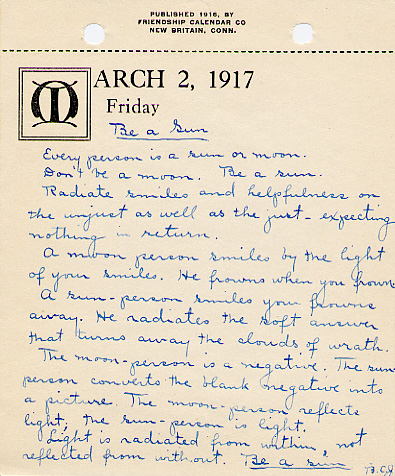 PUBLISHED 1916, BY
FRIENDSHIP CALENDAR CO
NEW BRITAIN, CONN.
MARCH 2, 1917
Friday
Be a Sun
Every person is a sun or moon.
Don't be a moon. Be a sun.
Radiate smiles and helpfulness on
the unjust as well as the just - expecting
nothing in return.
A moon person smiles by the light
of your smiles. He frowns when you frown.
A sun-person smiles your frowns
away. He radiates the soft answer
that turns away the clouds of wrath.
The moon-person is a negative. The sun-
person converts the blank negative into
a picture. The moon-person reflects
light; the sun-person is light.
Light is radiated from within, not
reflected from without. Be a sun.
B.C.J.